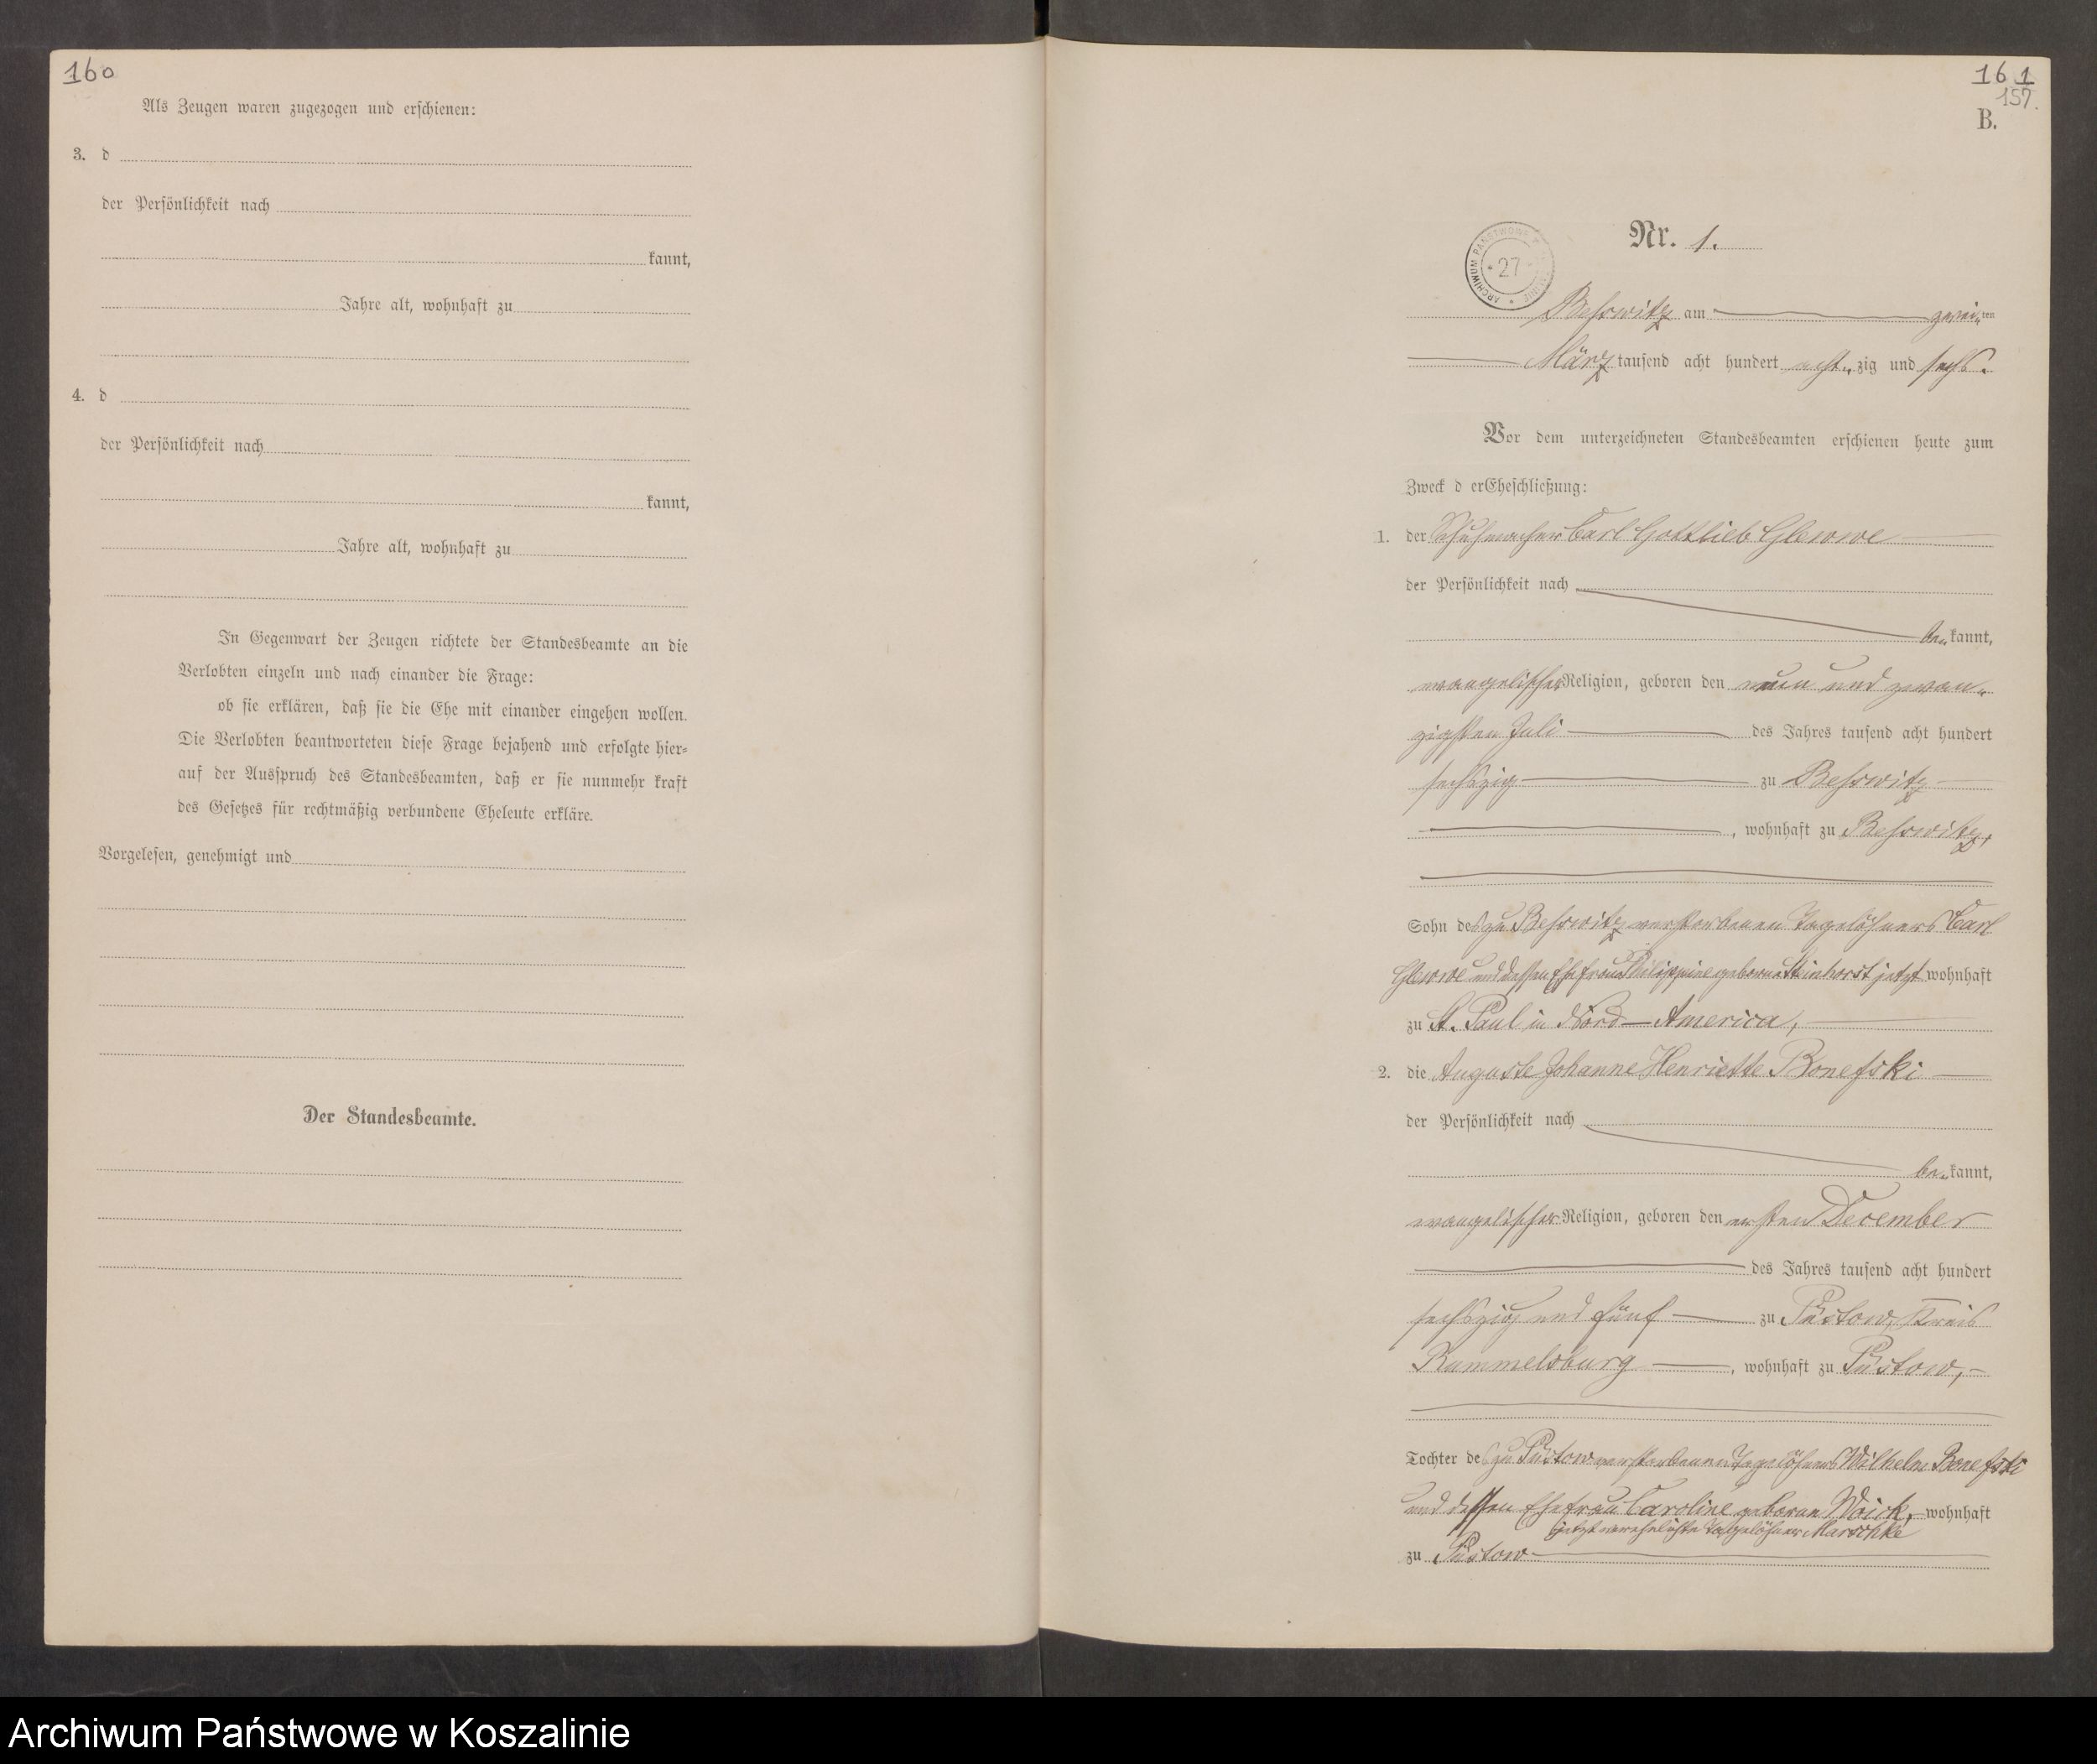 160
Als Zeugen waren zugezogen und erschienen:
3. d
der Persönlichkeit nach
kannt,
Jahre alt, wohnhaft zu
4. d
der Persönlichkeit nach
kannt,
Jahre alt, wohnhaft zu
In Gegenwart der Zeugen richtete der Standesbeamte an die
Verlobten einzeln und nach einander die Frage:
ob sie erklären, daß sie die Ehe mit einander eingehen wollen.
Die Verlobten beantworteten diese Frage bejahend und erfolgte hier-
auf der Ausspruch des Standesbeamten, daß er sie nunmehr kraft
des Gesetzes für rechtmäßig verbundene Eheleute erkläre.
Vorgelesen, genehmigt und
Der Standesbeamte.
161
157.
B.
Nr. 1.
ARCHIWUM PAŃSTWOWE
* 27 *
Beßwitz am zwei„ten
März tausend acht hundert acht„zig und sechs.
Vor dem unterzeichneten Standesbeamten erschienen heute zum
Zweck d erEheschließung:
1. der Schuhmacher Carl Gottlieb Glewwe
der Persönlichkeit nach
be„kannt,
evangelischer Religion, geboren den neun und zwan„
zigsten Juli des Jahres tausend acht hundert
sechszig zu Beßwitz
, wohnhaft zu Beßwitz,
Sohn des zu Beßwitz verstorbenen Tagelöhners Carl
Glewwe und dessen Ehefrau Philippine geborne Steinhorst jetzt wohnhaft
zu St. Paul in Nord-America,
2. die Auguste Johanne Henriette Bonefski
der Persönlichkeit nach
be„kannt,
evangelischer Religion, geboren den ersten December
des Jahres tausend acht hundert
sechszig und fünf zu Püstow, Kreis
Rummelsburg, wohnhaft zu Püstow,
Tochter des zu Püstow verstorbenen Tagelöhners Wilhelm Bonefski
und dessen Ehefrau Caroline geboren Woick, wohnhaft
jetzt verehelichte Tagelöhner Marschke
zu Püstow
Archiwum Państwowe w Koszalinie